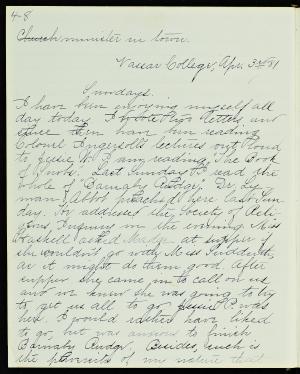 48
Church minister in town.
Vassar College, Apr. 3rd, 81
Sundays.
I have been enjoying myself all
day today. I wrote letters and
since then have been reading
Colonel Ingersoll's lectures out loud
to Jessie W. I am reading The Book
of Last Sunday I read the
whole of "Barnaby Rudge". Dr. Ly-
man Abbot preached here last Sun-
day. He addressed the Society of Reli-
gious Inquiry in the evening. Miss
Braskell asked Madge at supper if
she wouldn't go with Miss
as it might do them good. After
supper she came in to call on us
and we knew she was going to try
to get us all to go.
her. I would rather have liked
to go, but was anxious to finish
Barnaby Rudge. Besides, such is
the of my nature that